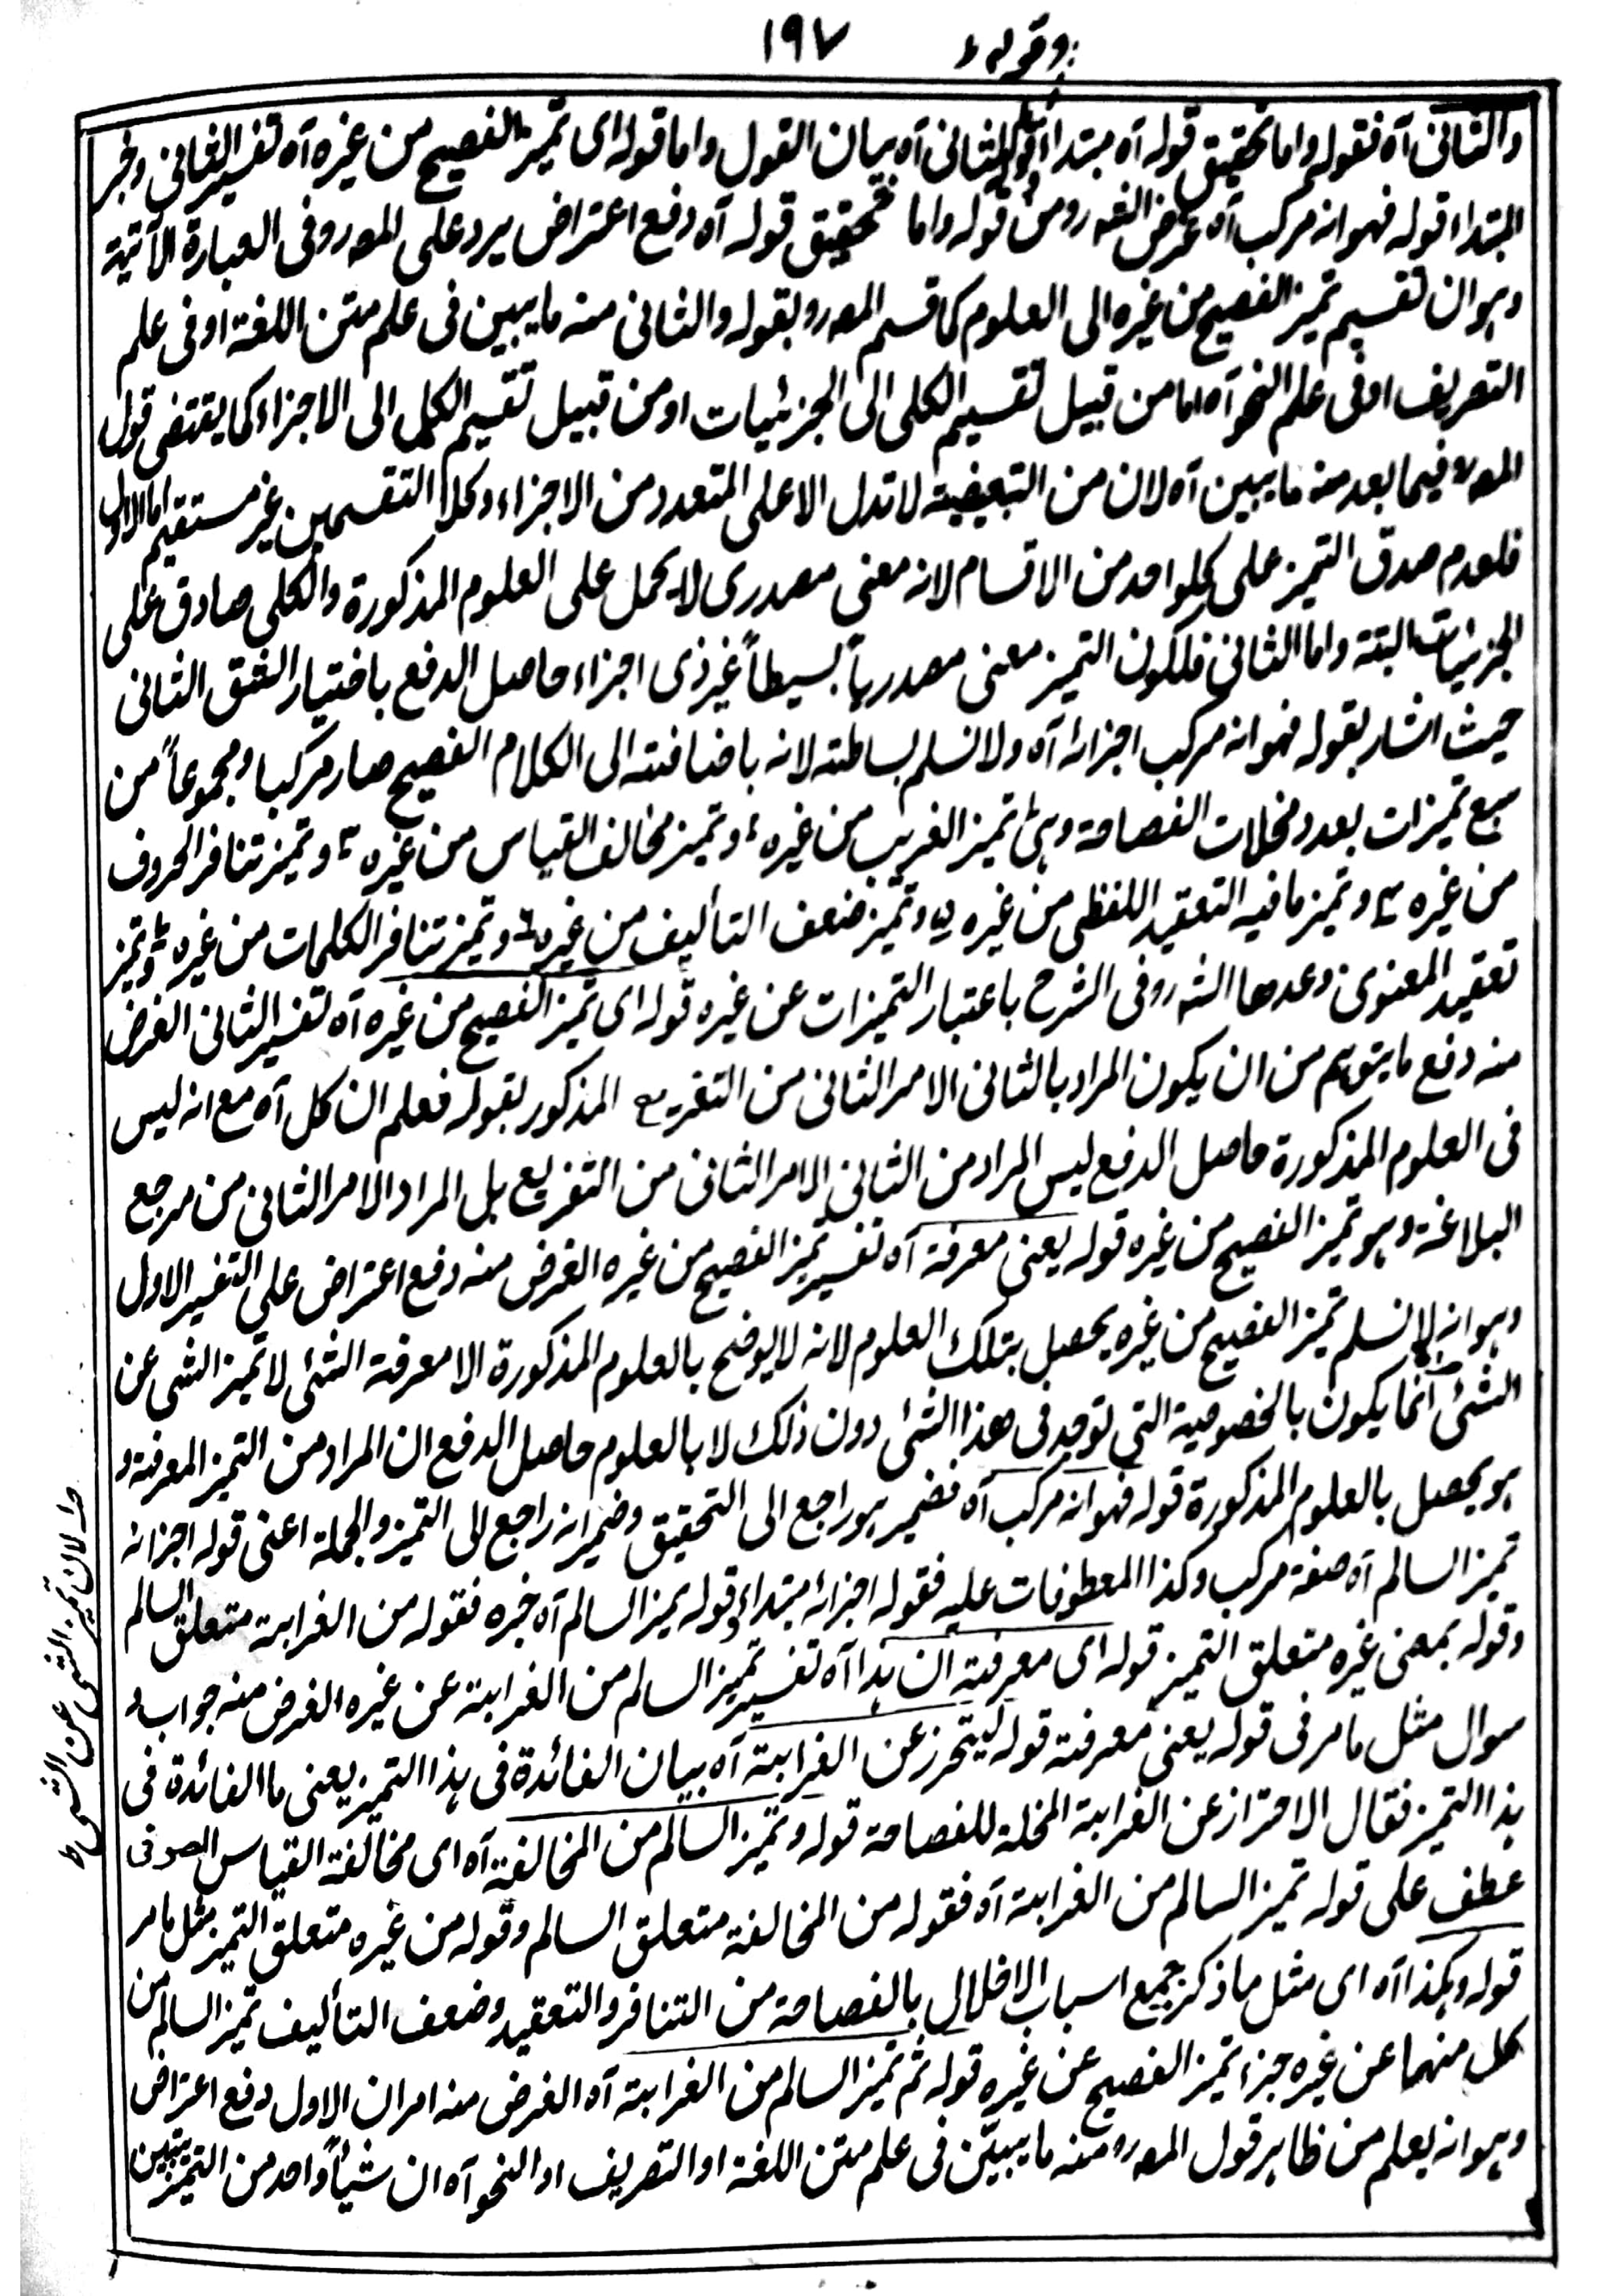 وقوله ١٩٧
والثانى آه فقوله واما تحقيق قوله آه مبتدأ وقوله الثانى آه بيان القول واما قوله اى تميز الفصيح من غيره آه تفسير الثانى وخبر
المبتداء قوله فهو انه مركب آه غرض الشه رومن قوله واما تحقيق قوله آه دفع اعتراض يرد على المصرو فى العبارة الآتية
وهو ان تقسيم تميز الفصيح من غيره الى العلوم كما قسم المصرو بقوله والثانى منه ما يبين فى علم متن اللغة او فى علم
التصريف او فى علم النحو آه اما من قبيل تقسيم الكلى الى الجزئيات او من قبيل تقسيم الكل الى الاجزاء كما يقتضى قول
المصره فيما بعد منه ما يبين آه لان من التبعيضية لا تدل الا على المتعدد من الاجزاء وكلا التقسمين غير مستقيم اما الاول
فلعدم صدق التميز على كلواحد من الاقسام لانه معنى مصدرى لا يحمل على العلوم المذكورة والكلى صادق على
الجزئيات البتة واما الثانى فلكون التميز معنى مصدرياً بسيطاً غير ذى اجزاء حاصل الدفع باختيار الشق الثانى
حيث اشار بقوله فهو انه مركب اجزائه آه ولا نسلم بساطته لانه باضافته الى الكلام الفصيح صار مركبا ومجموعاً من
سبع تميزات بعدد مخلات الفصاحة وهى تميز الغريب من غيره ١ وتميز مخالف القياس من غيره ٢ وتميز تنافر الحروف
من غيره ٣ وتميز ما فيه التعقيد اللفظى من غيره ٥ وتميز ضعف التأليف من غيره ٦ وتميز تنافر الكلمات من غيره وتميز
تعقيد المعنوى وعدها الشه رو فى الشرح باعتبار التميزات عن غيره قوله اى تميز الفصيح من غيره آه تفسير الثانى الغرض
منه دفع ما يتوهم من ان يكون المراد بالثانى الامر الثانى من التفريع المذكور بقوله فعلم ان كل آه مع انه ليس
فى العلوم المذكورة حاصل الدفع ليس المراد من الثانى الامر الثانى من التفريع بل المراد الامر الثانى من مرجع
البلاغة وهو تميز الفصيح من غيره قوله يعنى معرفة آه تفسير تميز الفصيح من غيره الغرض منه دفع اعتراض على التفسير الاول
وهو انه لا نسلم تميز الفصيح من غيره يحصل بتلك العلوم لانه لا يوضح بالعلوم المذكورة الا معرفة الشئى لا تميز الشى عن
الشئى انما يكون بالخصوصية التى توجد فى هذا الشئى دون ذلك لا بالعلوم حاصل الدفع ان المراد من التميز المعرفة و
هو يحصل بالعلوم المذكورة قوله فهو انه مركب آه فضمير هو راجع الى التحقيق وضمير انه راجع الى التميز والجملة اعنى قوله اجزائه
تميز السالم آه صفة مركب وكذا المعطوفات عليه فقوله اجزائه مبتداء وقوله تميز السالم آه خبره فقوله من الغرابة متعلق السالم
وقوله بمعنى غيره متعلق التميز قوله اى معرفة ان هذا آه تفسير تميز السالم من الغرابة عن غيره الغرض منه جواب
سوال مثل ما مر فى قوله يعنى معرفة قوله ليتحرز عن الغرابة آه بيان الفائدة فى هذا التميز يعنى ما الفائدة فى
هذا التميز فقال الاحتراز عن الغرابة المخلة للفصاحة قوله وتميز السالم من المخالفة آه اى مخالفة القياس الصرفى
عطف على قوله تميز السالم من الغرابة آه فقوله من المخالفة متعلق السالم وقوله من غيره متعلق التميز مثل ما مر
قوله وهكذا آه اى مثل ما ذكر جميع اسباب الاخلال بالفصاحة من التنافر والتعقيد وضعف التأليف تميز السالم من
كل منهما عن غيره جزء تميز الفصيح عن غيره قوله ثم تميز السالم من الغرابة آه الغرض منه امران الاول دفع اعتراض
وهو انه يعلم من ظاهر قول المصره منه ما يبيّن فى علم متن اللغة او التصريف او النحو آه ان شيأ واحد من التميز يتبين
لان تميز الشى عن الشى